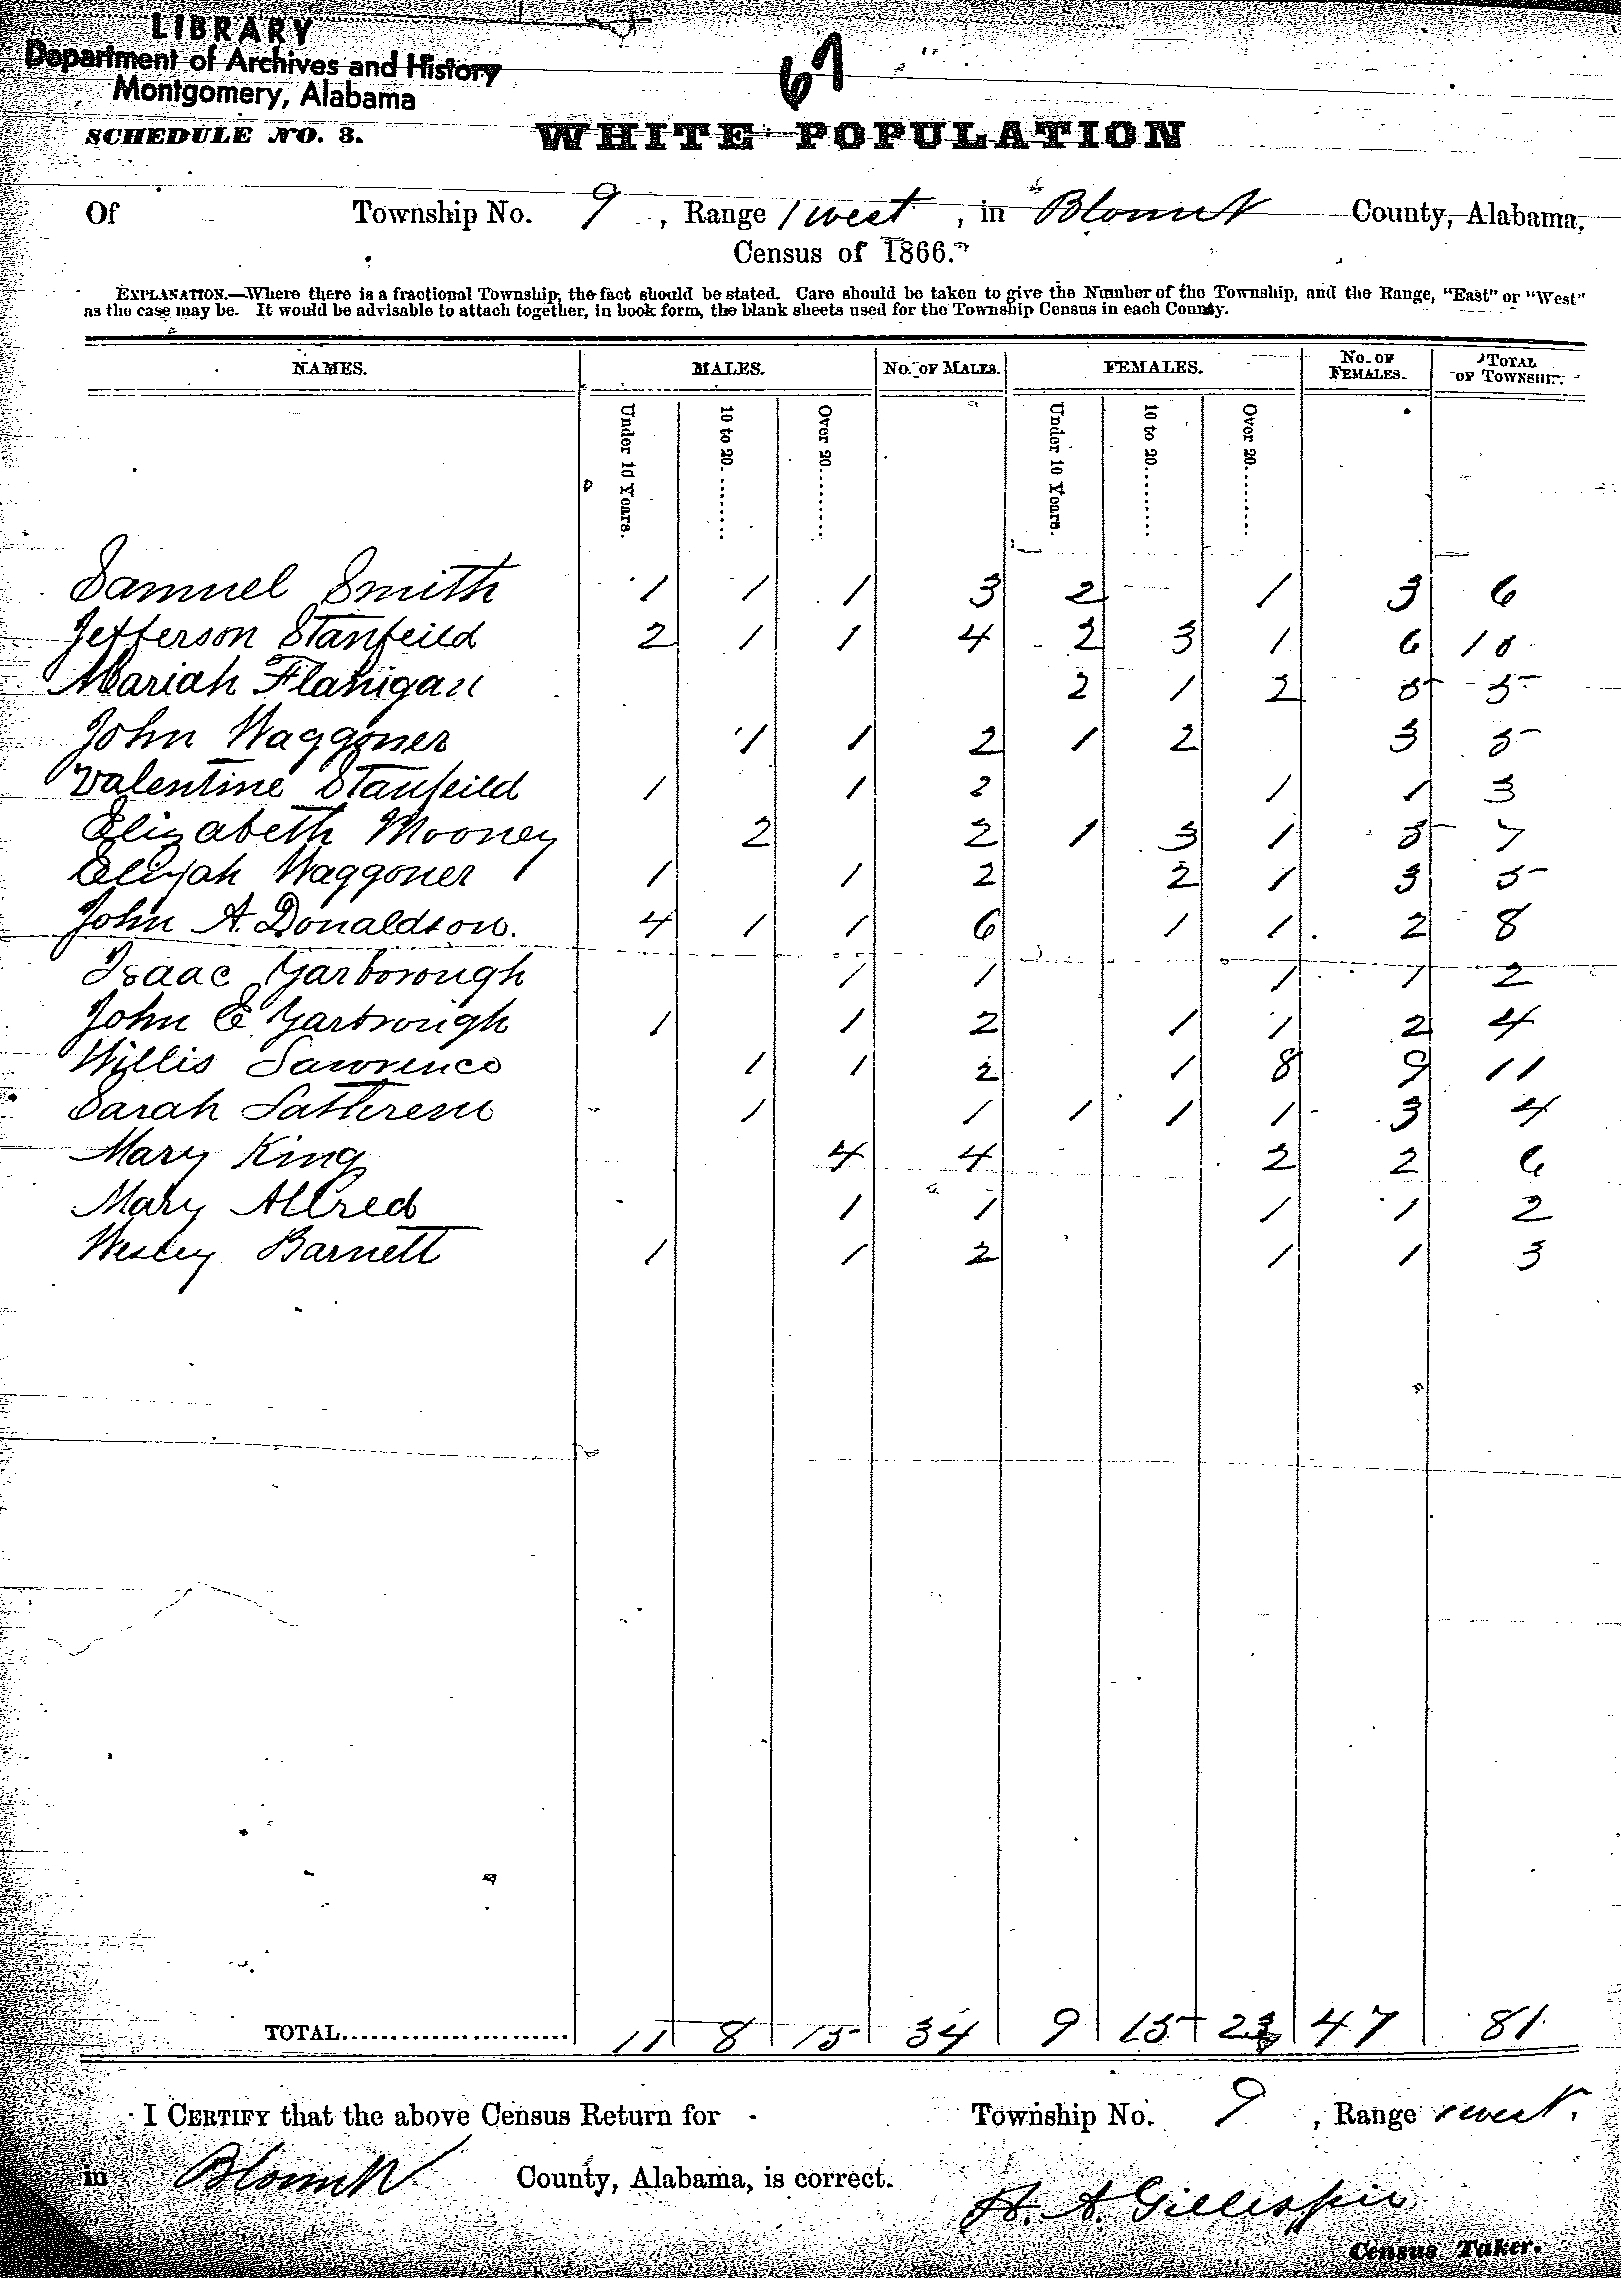 LIBRARY
Department of Archives and History
Montgomery, Alabama
67
SCHEDULE NO. 3.
WHITE POPULATION
Of Township No. 9, Range 1 west, in Blount County, Alabama,
Census of 1866.
EXPLANATION.—Where there is a fractional Township, the fact should be stated. Care should be taken to give the Number of the Township, and the Range, "East" or "West"
as the case may be. It would be advisable to attach together, in book form, the blank sheets used for the Township Census in each County.
NAMES. MALES. No. of Males. FEMALES. No. of Females. Total of Township.
Under 10 Years. 10 to 20......... Over 20......... Under 10 Years. 10 to 20......... Over 20.........
Samuel Smith 1 1 1 3 2 1 3 6
Jefferson Stanfeild 2 1 1 4 2 3 1 6 10
Mariah Flanigan 2 1 2 5 5
John Waggoner 1 1 2 1 2 3 5
Valentine Stanfeild 1 1 2 1 1 3
Elizabeth Mooney 2 2 1 3 1 5 7
Elijah Waggoner 1 1 2 2 1 3 5
John A. Donaldson. 4 1 1 6 1 1 2 8
Isaac Yarborough 1 1 1 1 2
John E Yarbrough 1 1 2 1 1 2 4
Willis Lawrence 1 1 2 1 8 9 11
Sarah 1 1 1 1 1 3 4
Mary King 4 4 2 2 6
Mary Allred 1 1 1 1 2
Wesley Barnett 1 1 2 1 1 3
TOTAL...................... 11 8 15 34 9 15 23 47 81
I CERTIFY that the above Census Return for Township No. 9, Range 1 west.
in Blount County, Alabama, is correct.
A. A. Gillespie
Census Taker.